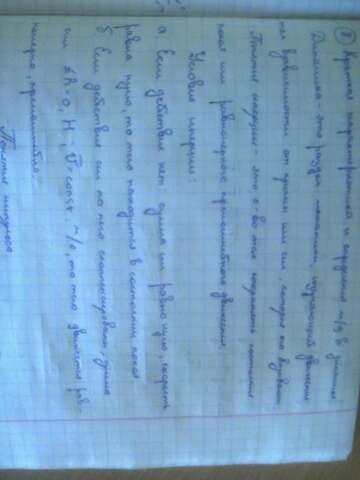 Краткая характеристика и
Динамика - это раздел механики, изучающий движение
тел в зависимости от причин или сил которые их вызвали.
Понятие инерции - это с-во тела сохранять состояние
покоя или равномерного прямолинейного движения.
Условия инерции:
а Если действия нет, сумма сил равна нулю, скорость
равна нулю, то тело находится в состоянии покоя
б Если действие сил на тело скомпенсировано, сумма
сил ΣR=0, Н - v̄=const, м/с, то тело движется рав-
номерно, прямолинейно.
Понятие импульса